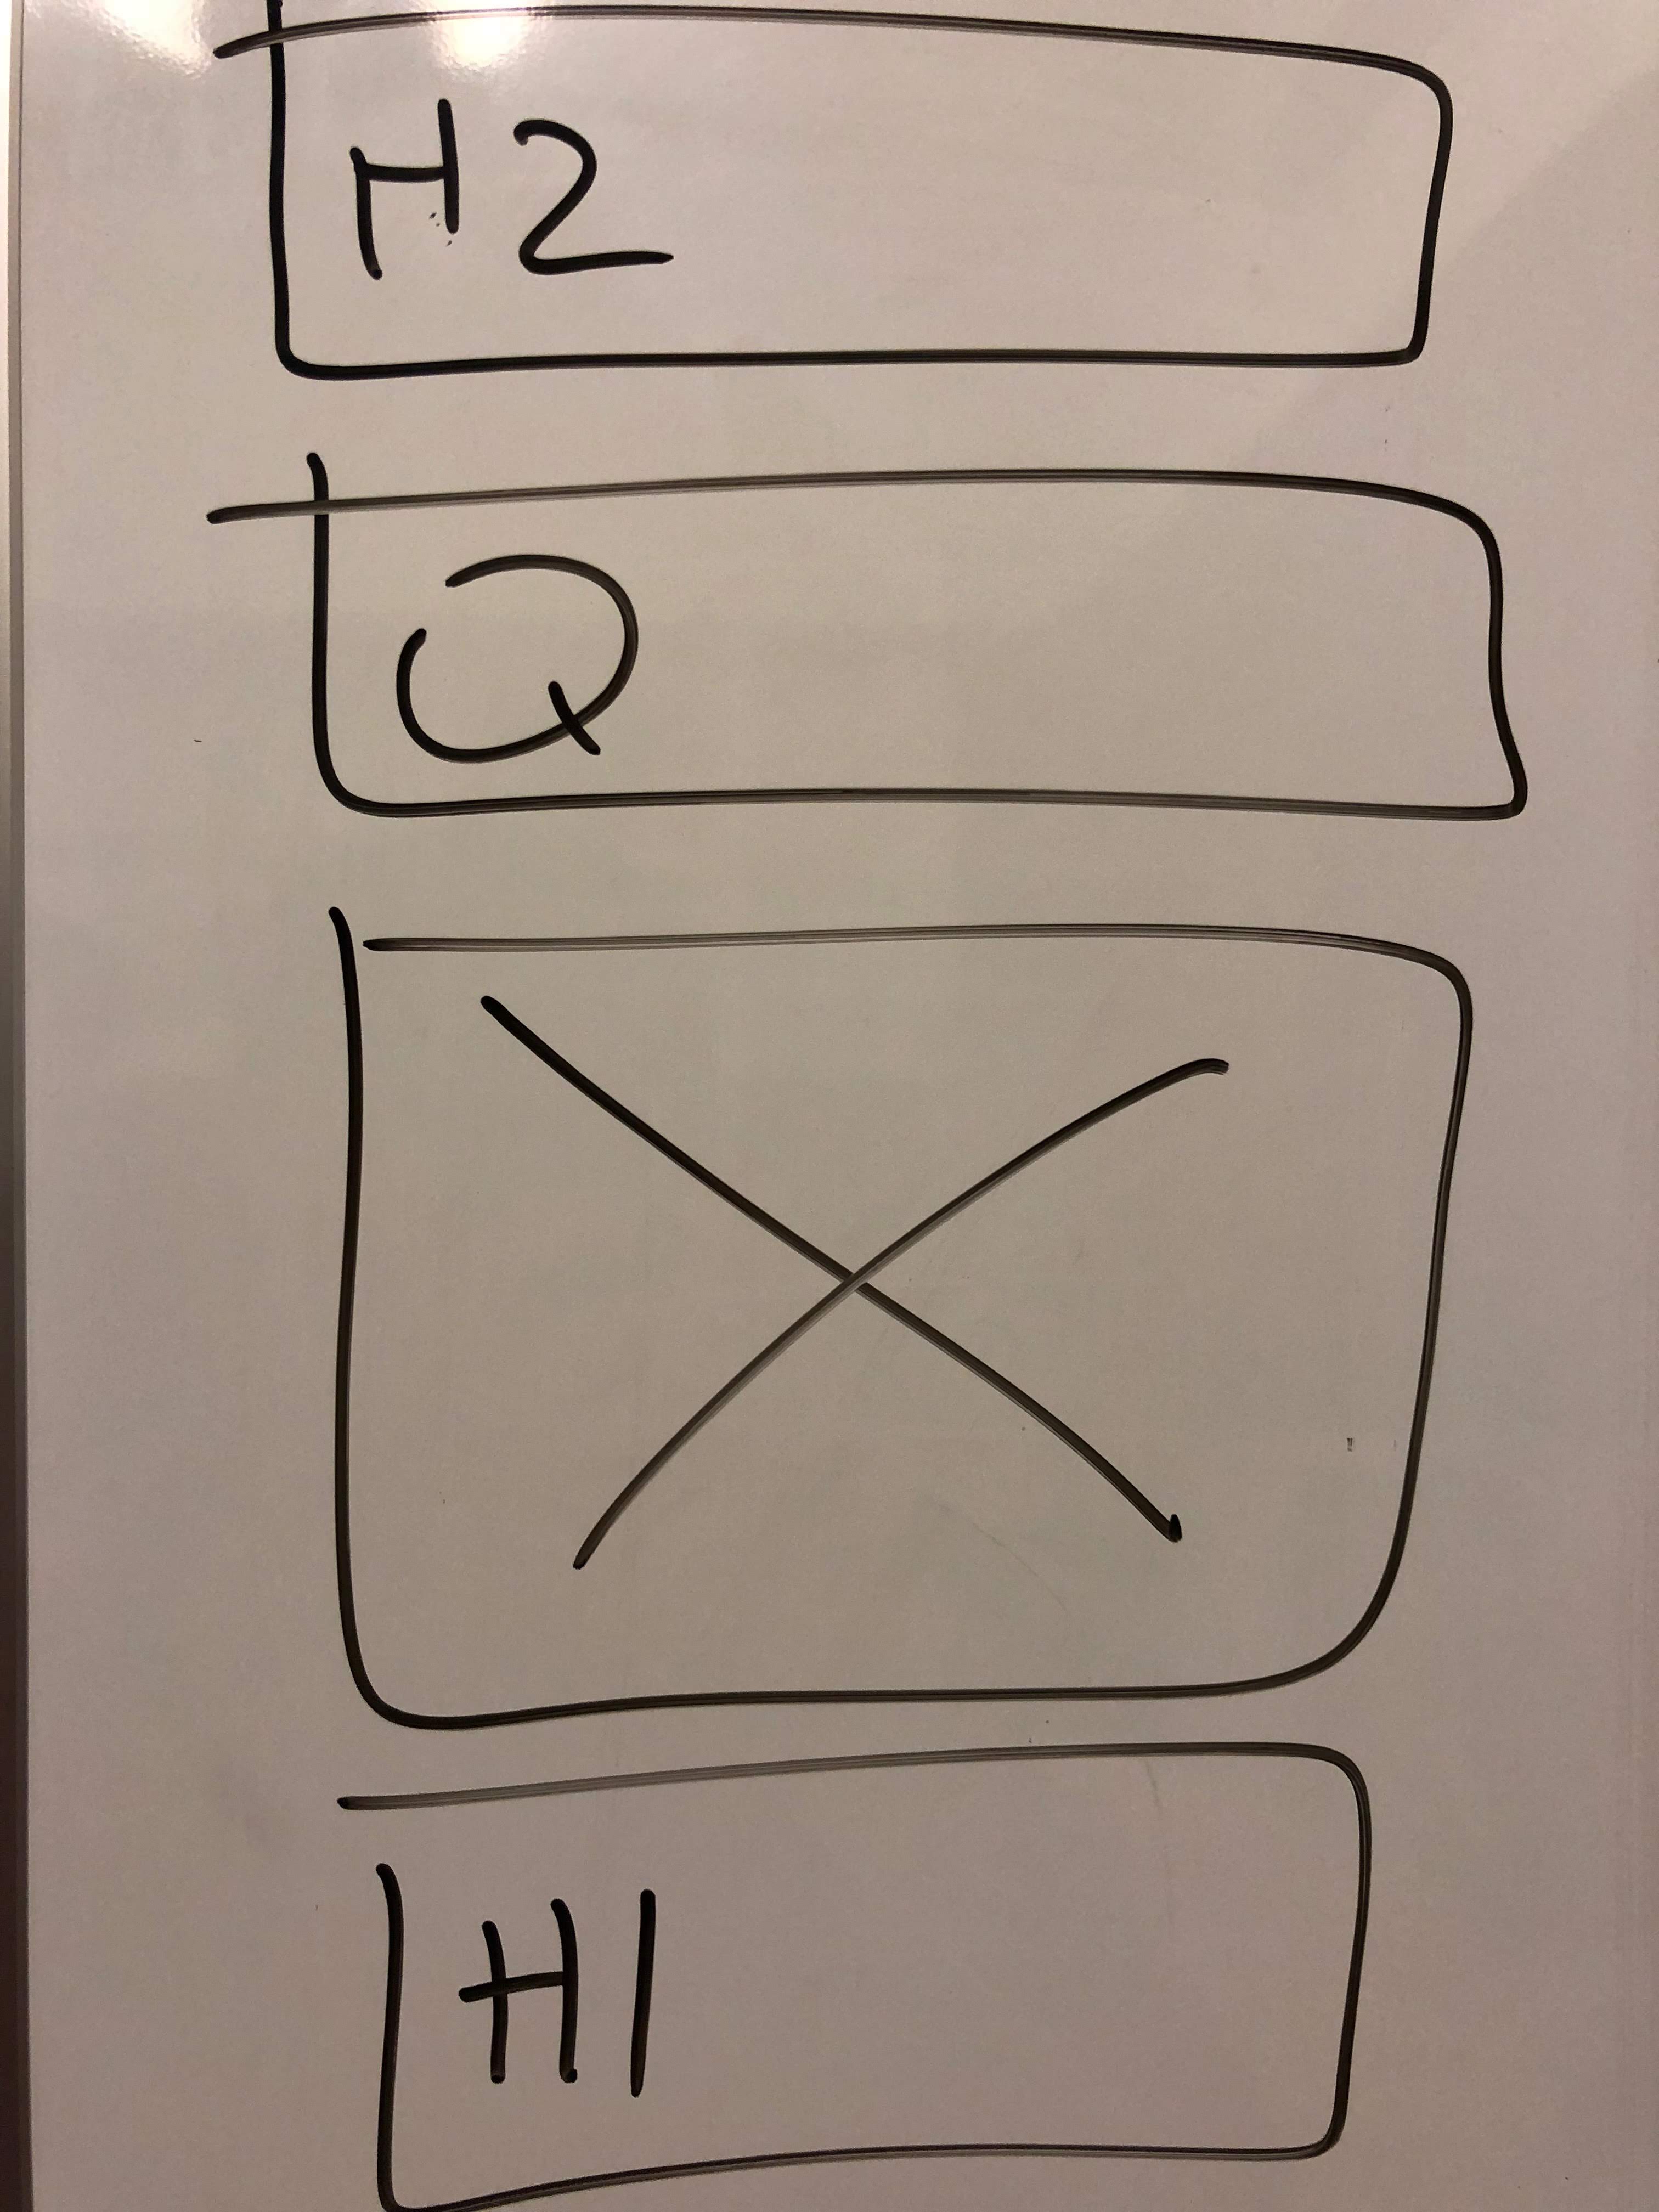 H2
Q
H1